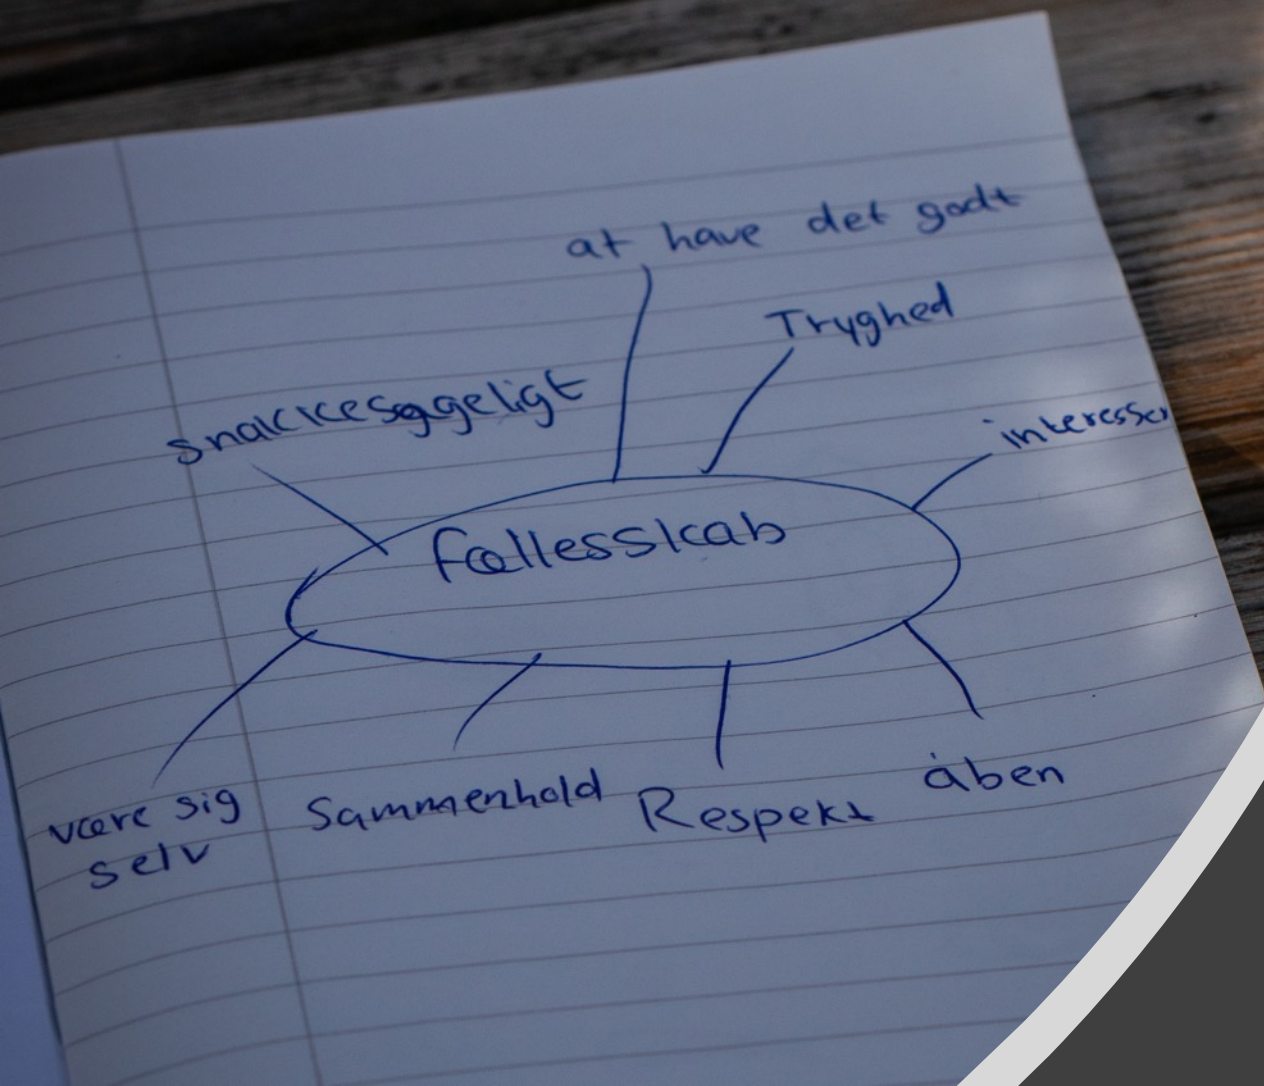 at have det godt
Tryghed
snakkesaggeligt
interesser
fællesskab
være sig
selv
Sammenhold
Respekt
åben